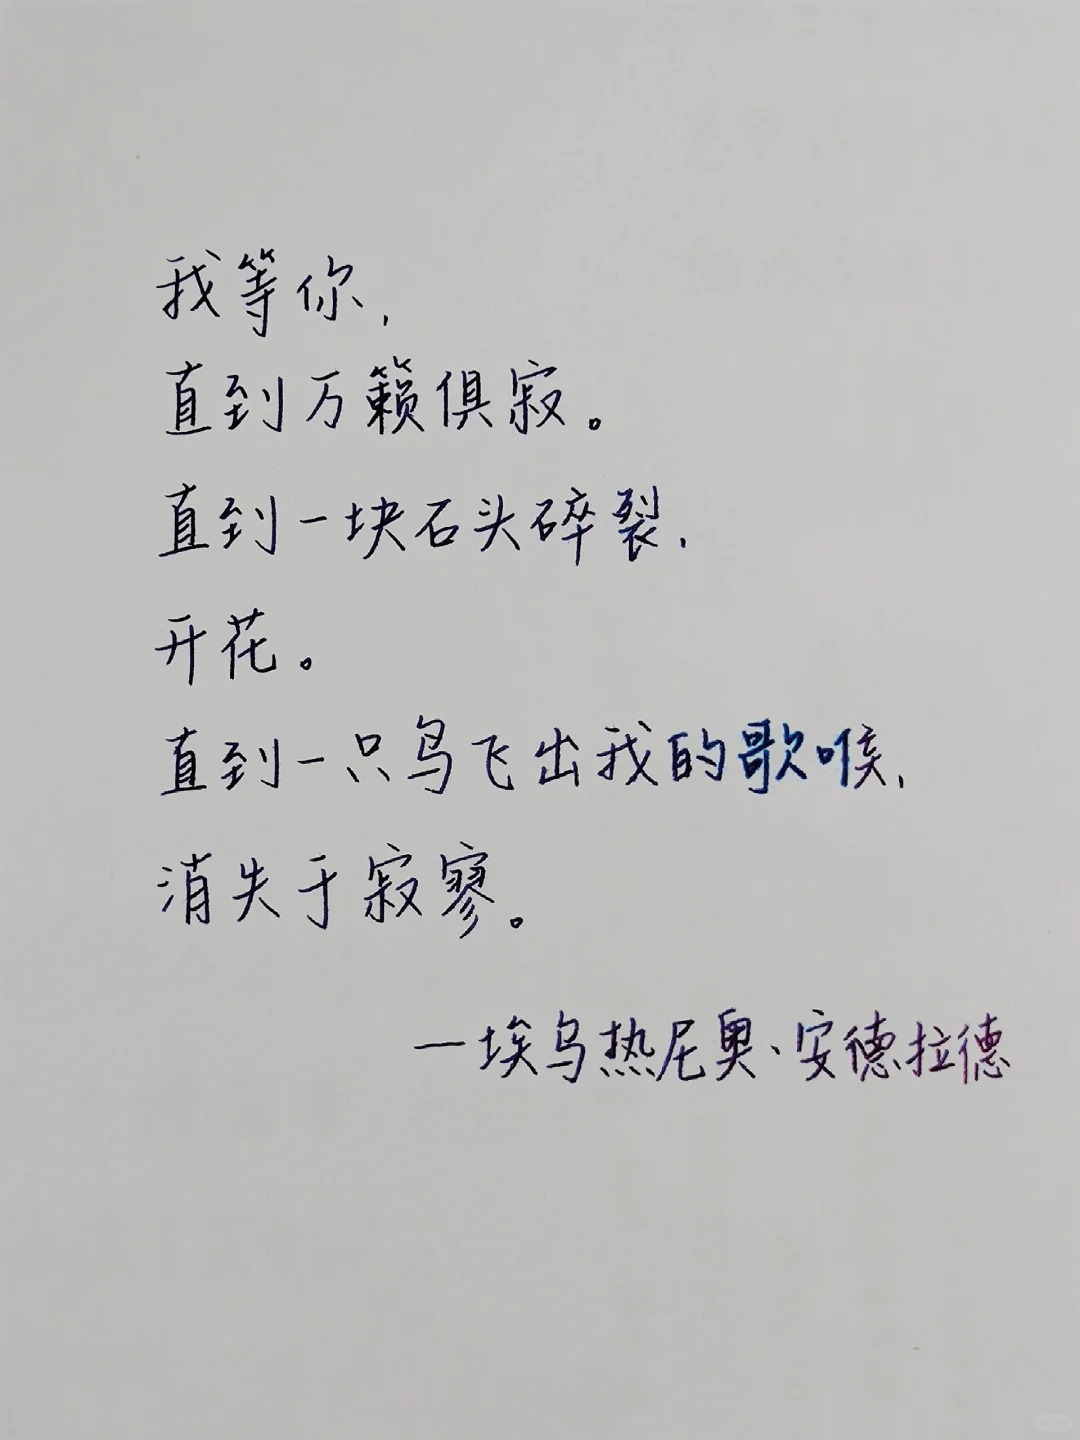 我等你，
直到万籁俱寂。
直到一块石头碎裂，
开花。
直到一只鸟飞出我的歌喉，
消失于寂寥。
—埃乌热尼奥·安德拉德